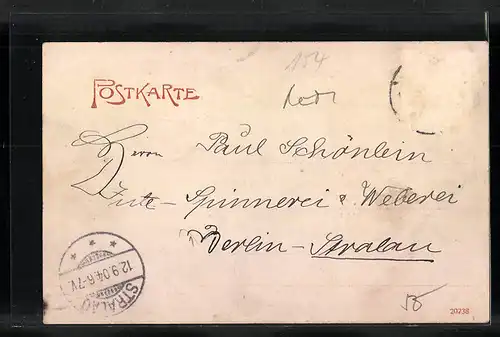 154
POSTKARTE
Herrn Paul Schönlein
Jute-Spinnerei & Weberei
Berlin-Stralau
STRALAU
12.9.04.6-7V.
20238